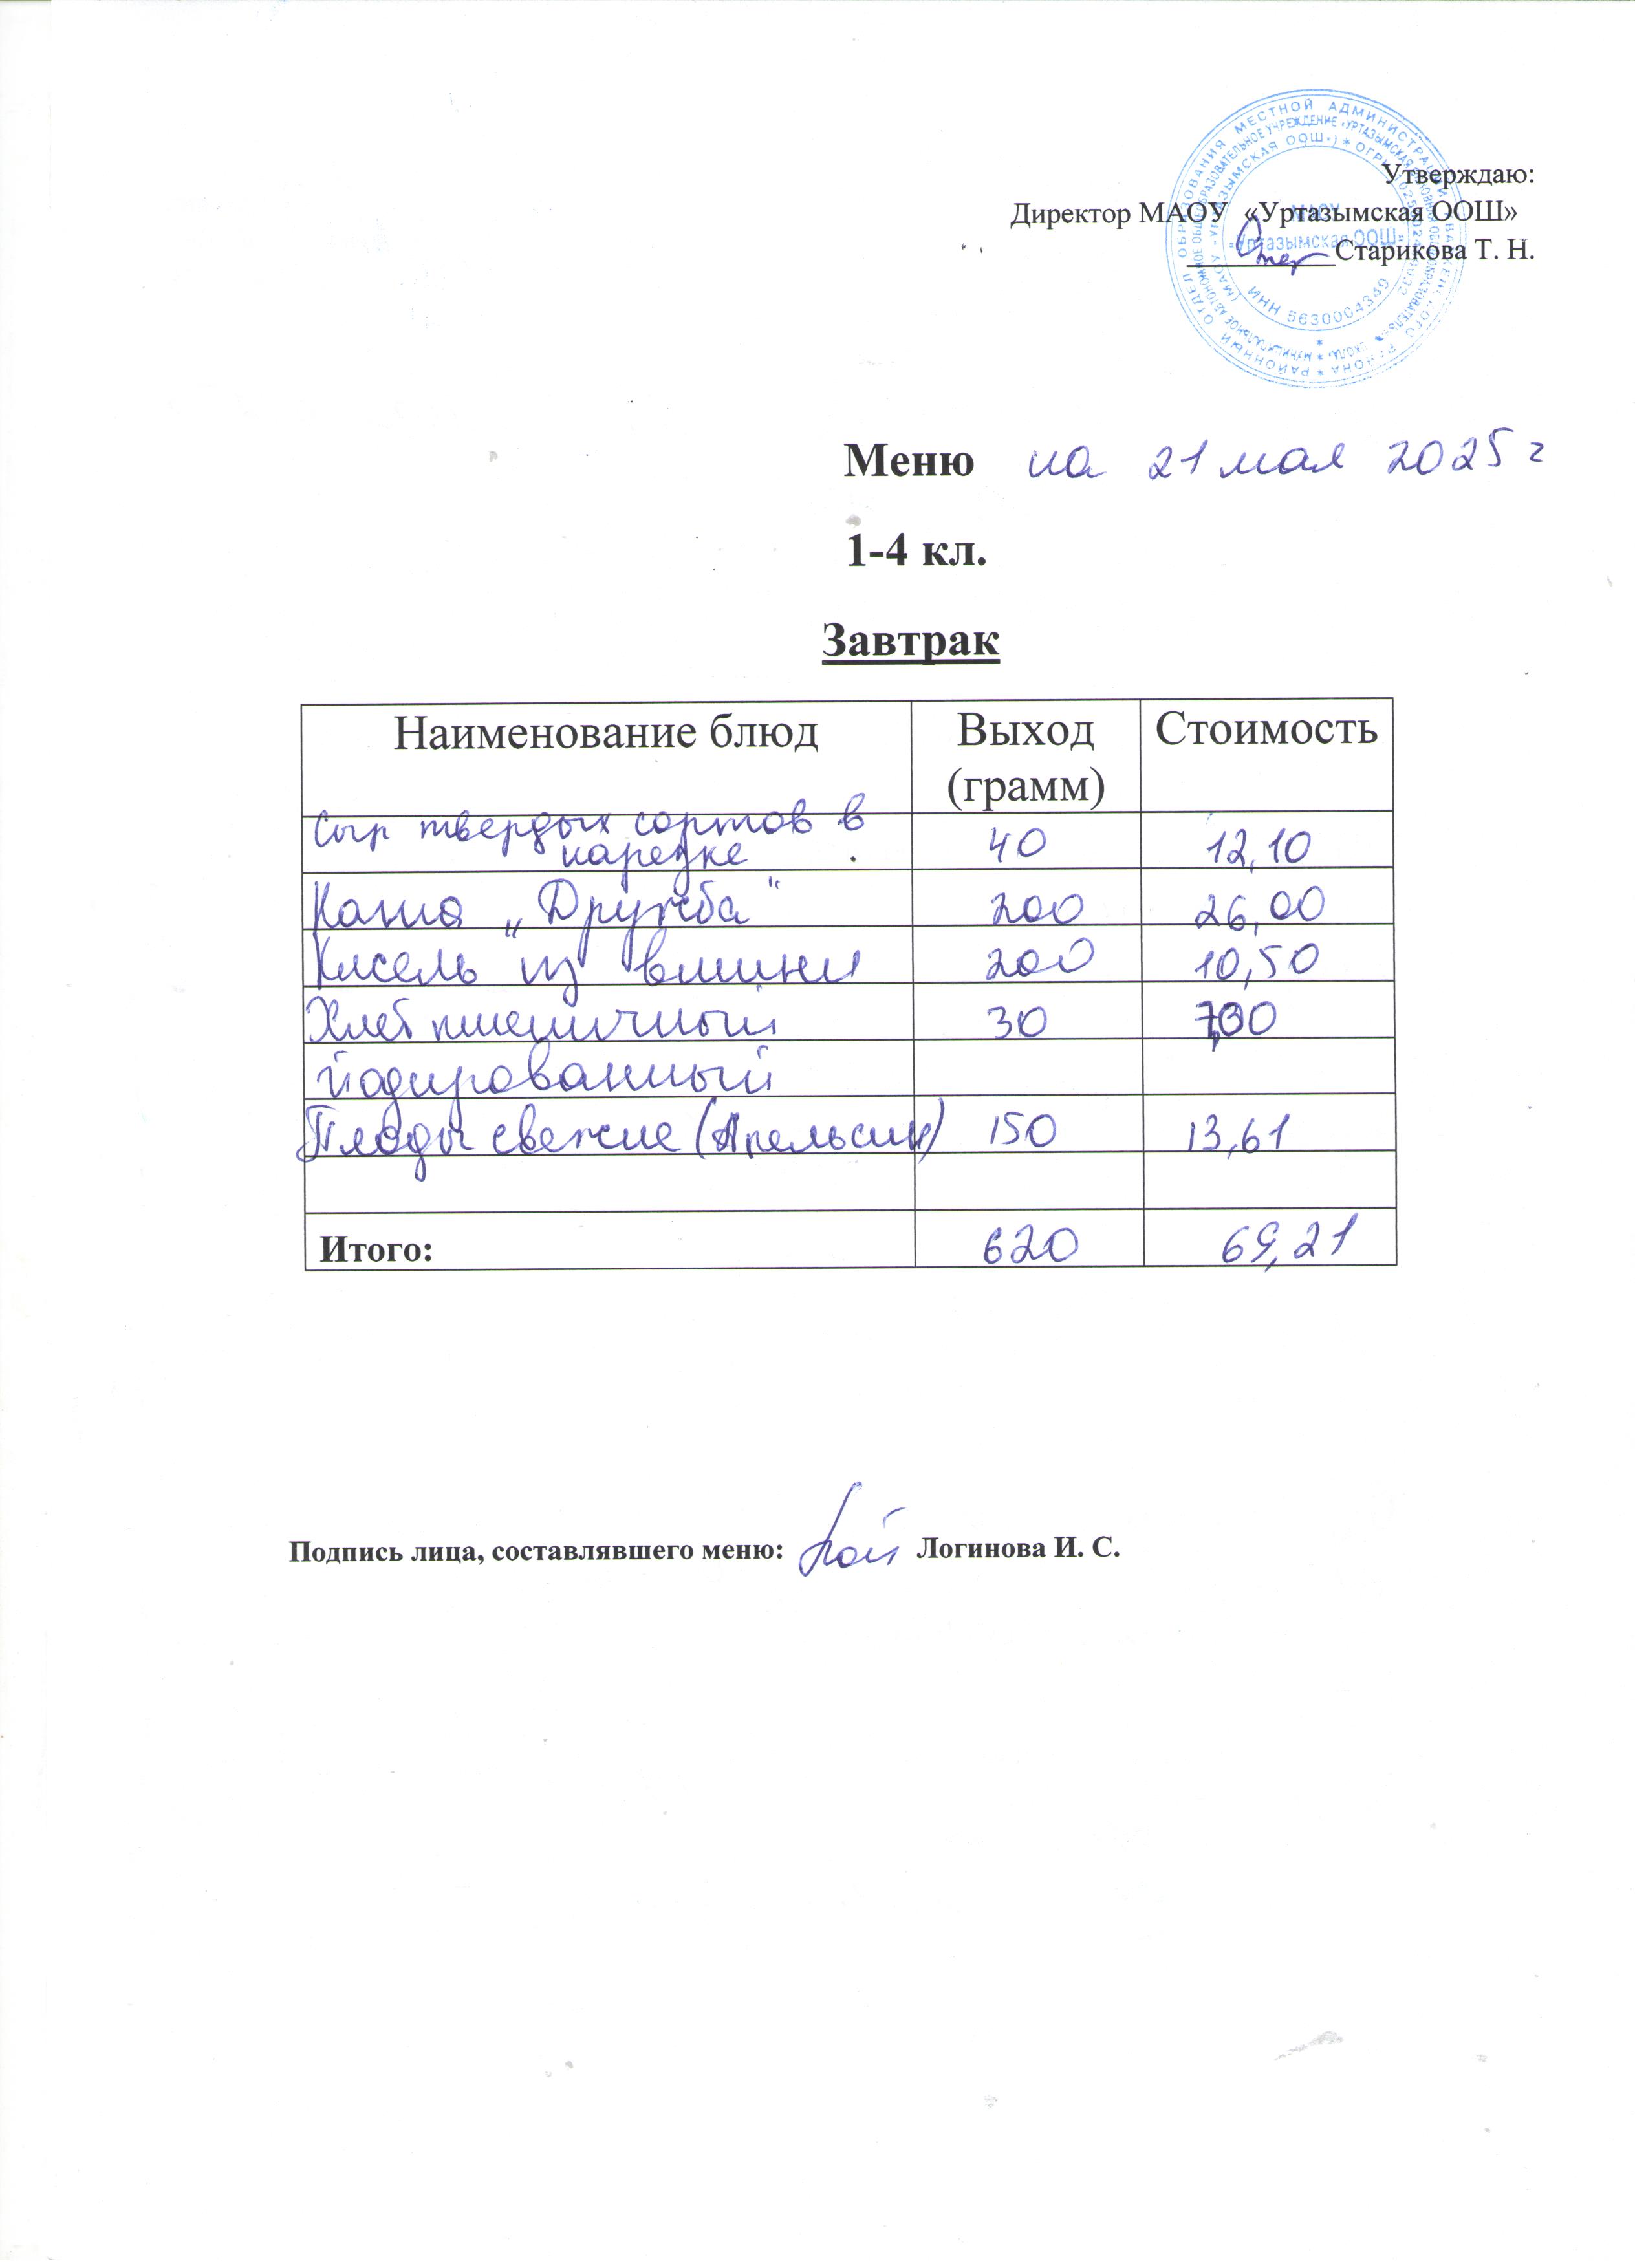 РАЙОННЫЙ ОТДЕЛ ОБРАЗОВАНИЯ МЕСТНОЙ АДМИНИСТРАЦИИ
МАОУ
«Уртазымская ООШ»
ИНН 5630004349
Утверждаю:
Директор МАОУ «Уртазымская ООШ»
Старикова Т. Н.
Меню на 21 мая 2025 г
1-4 кл.
Завтрак
Наименование блюд Выход (грамм) Стоимость
Сыр твердых сортов в
нарезке 40 12,10
Каша „Дружба" 200 26,00
Кисель из вишни 200 10,50
Хлеб пшеничный 30 7,00
йодированный
Плоды свежие (Апельсин) 150 13,61
Итого: 620 69,21
Подпись лица, составлявшего меню: Логинова И. С.